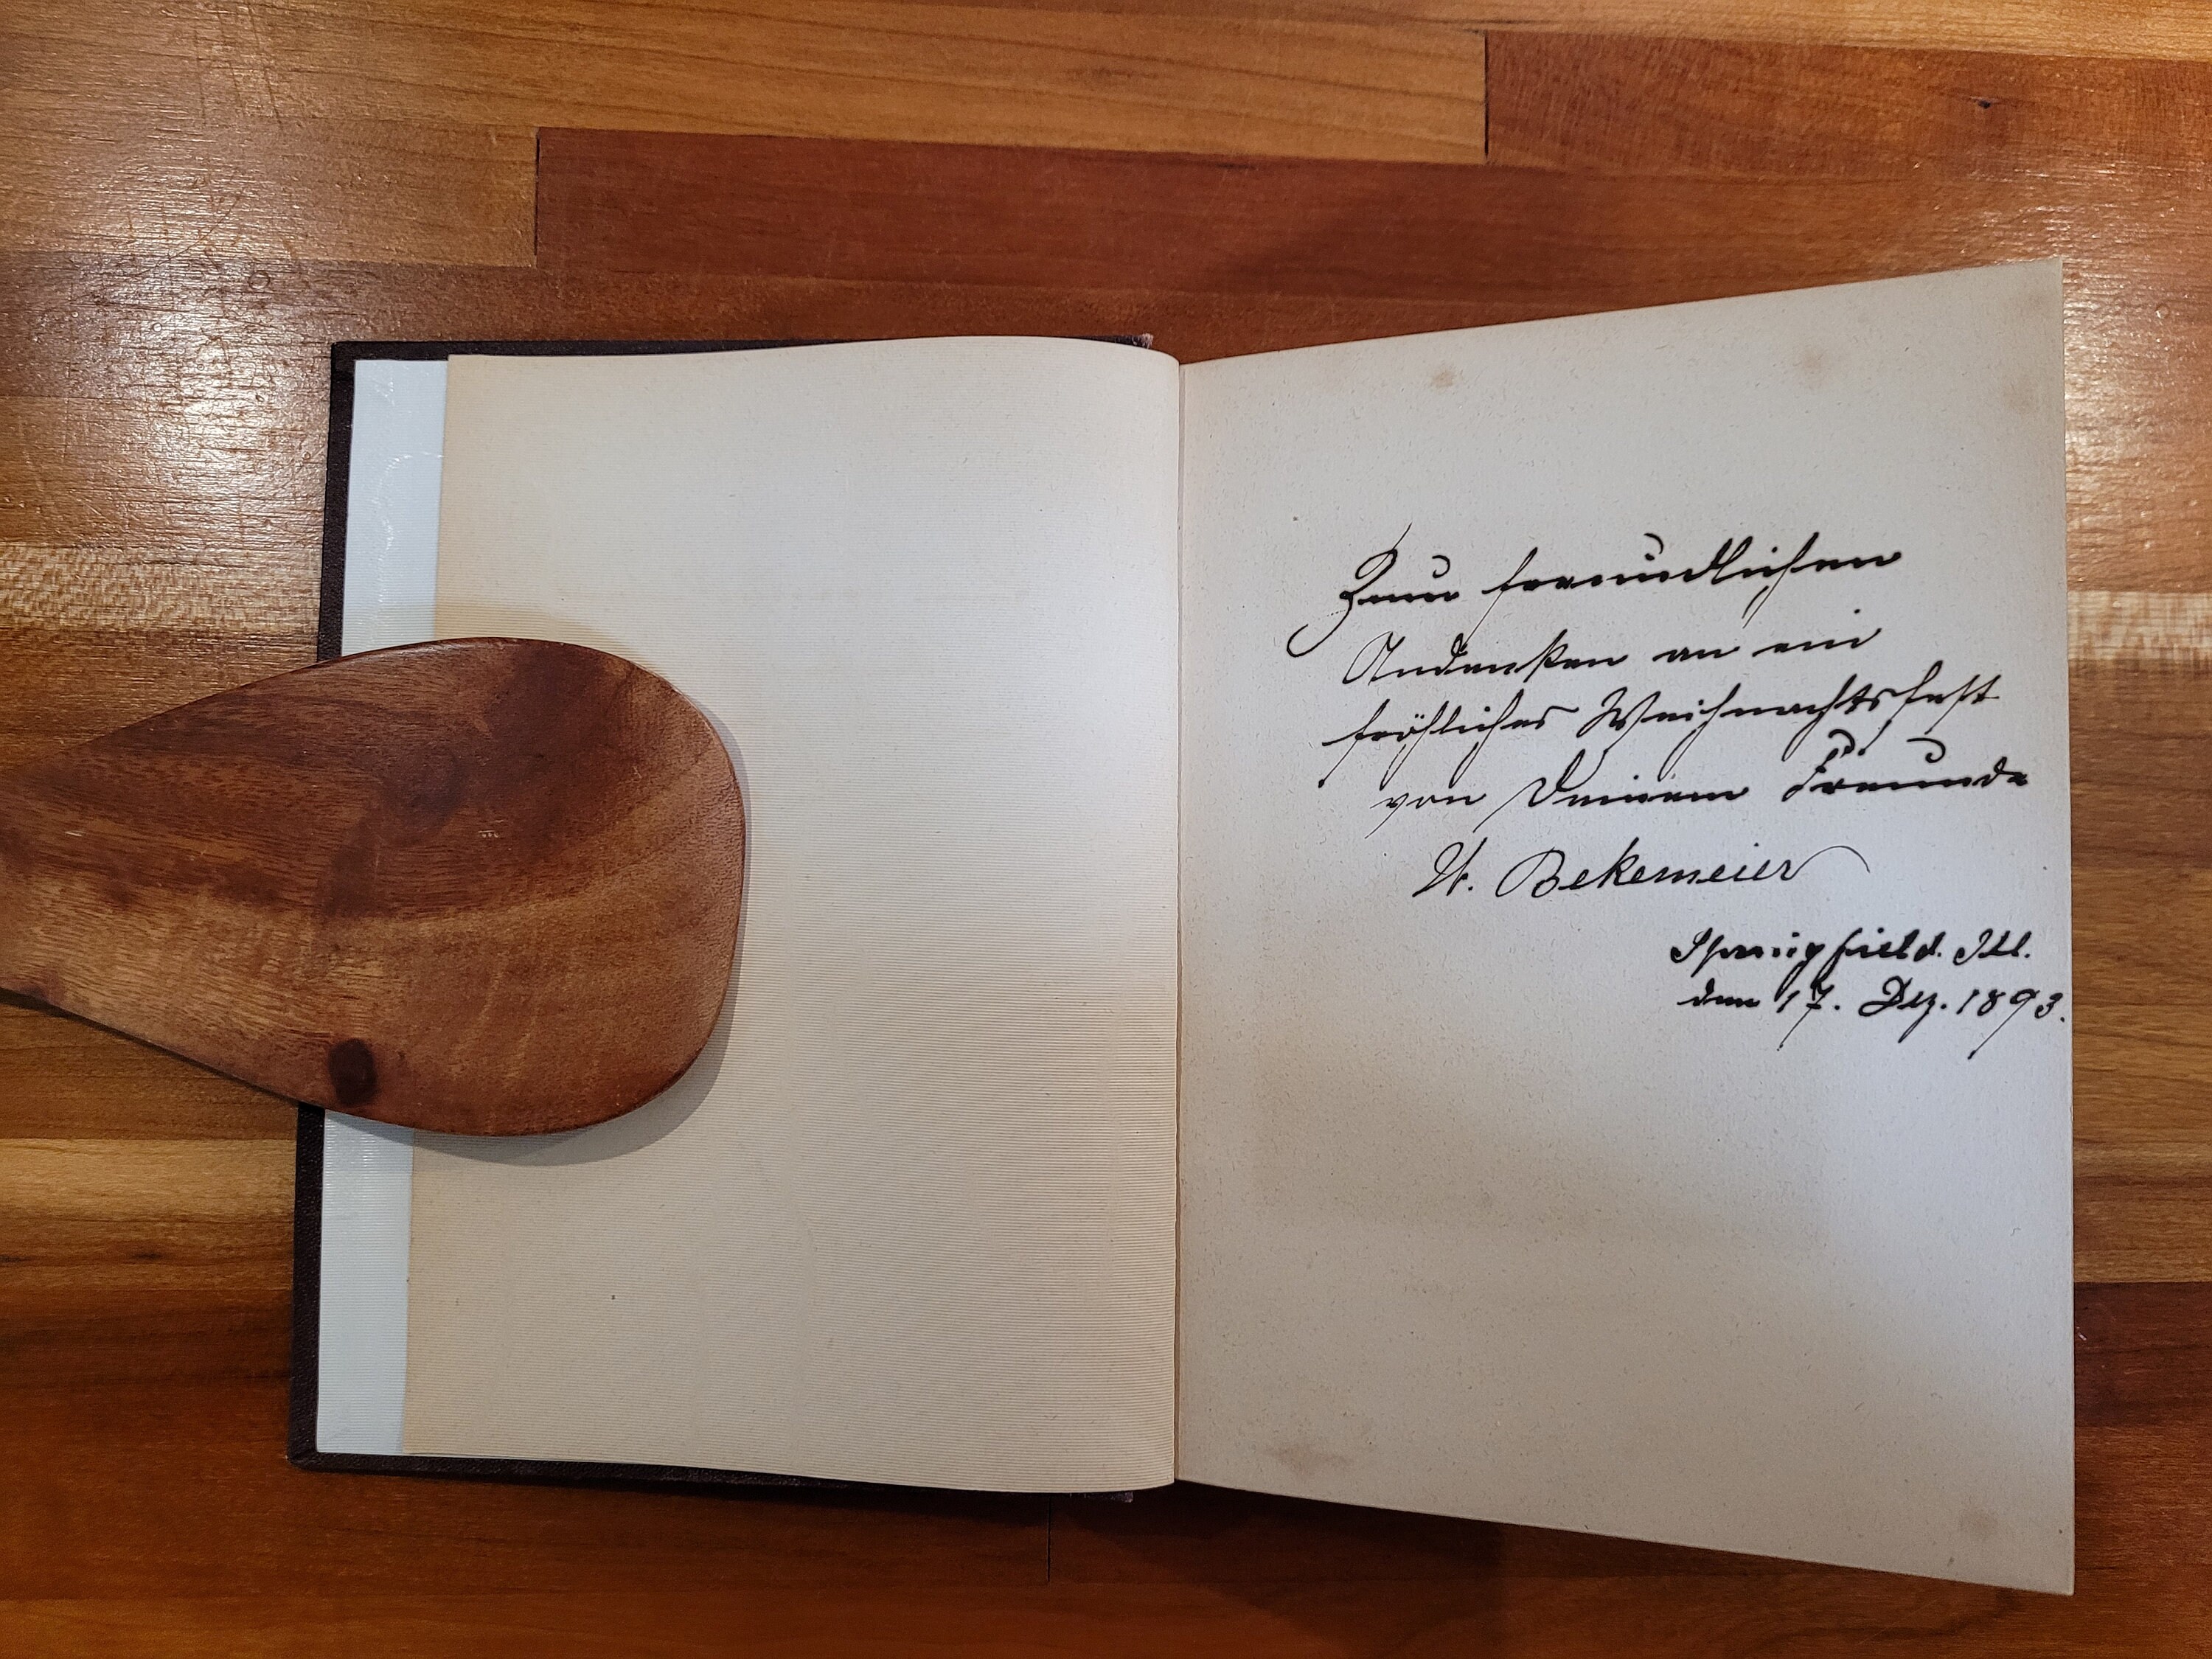 Zum freundlichen
Andenken an ein
fröhliches Weihnachtsfest
von Deinem Freunde
W. Bekemeier
Springfield. Ill.
den 17. Dez. 1893.